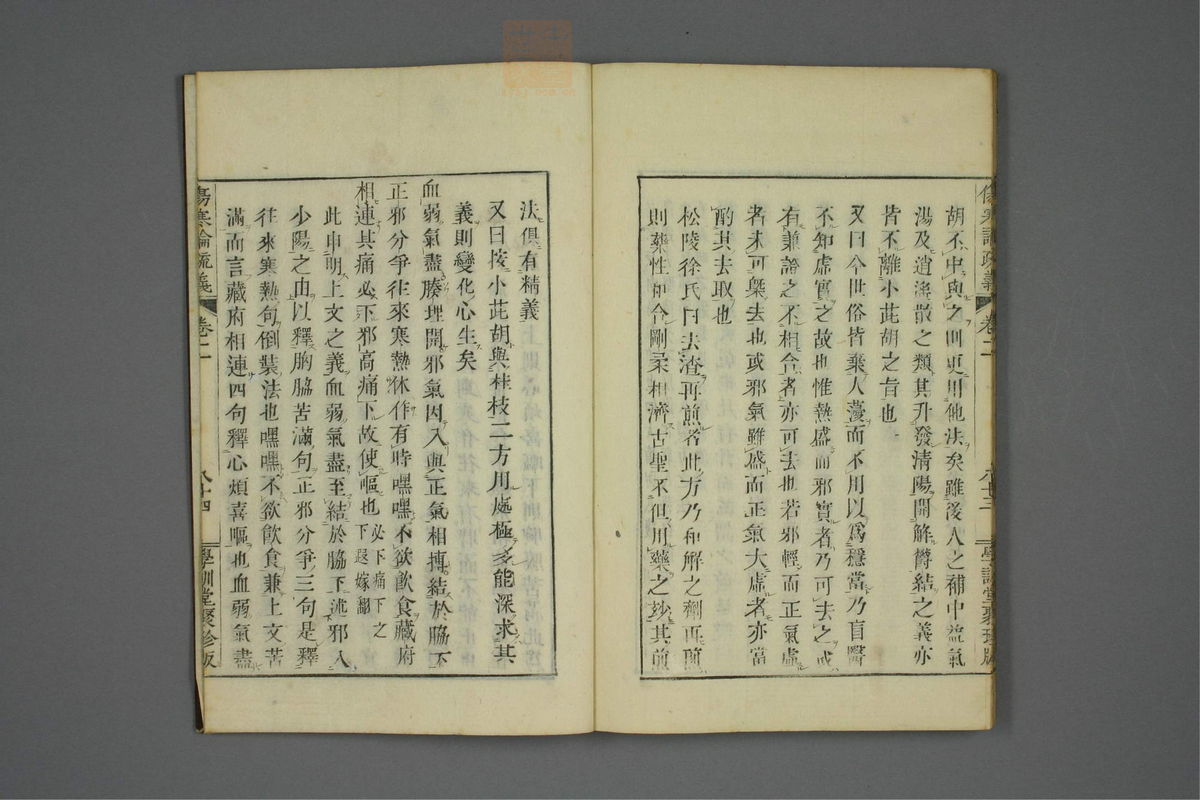 傷寒論疏義 卷二 八十三 學訓堂聚珍版
胡不中與之則更用他法矣雖後人之補中益氣
湯及逍遙散之類其升發清陽開解鬱結之義亦
皆不離小茈胡之旨也
又曰今世俗皆棄人薓而不用以爲穩當乃盲醫
不知虛實之故也惟熱盛而邪實者乃可去之或
有兼證之不相合者亦可去也若邪輕而正氣虛
者未可槩去也或邪氣雖盛而正氣大虛者亦當
酌其去取也
松陵徐氏曰去渣再煎者此方乃和解之劑再煎
則藥性和合剛柔相濟古聖不但用藥之妙其煎
法俱有精義
又曰按小茈胡與桂枝二方用處極多能深求其
義則變化心生矣
血弱氣盡腠理開邪氣因入與正氣相搏結於脇下
正邪分爭往來寒熱休作有時嘿嘿不欲飮食藏府
相連其痛必下邪高痛下故使嘔也 必下痛下之下遐嫁翻
此申明上文之義血弱氣盡至結於脇下述邪入
少陽之由以釋胸脇苦滿句正邪分爭三句是釋
往來寒熱句倒裝法也嘿嘿不欲飮食兼上文苦
滿而言藏府相連四句釋心煩喜嘔也血弱氣盡
傷寒論疏義 卷二 八十四 學訓堂聚珍版